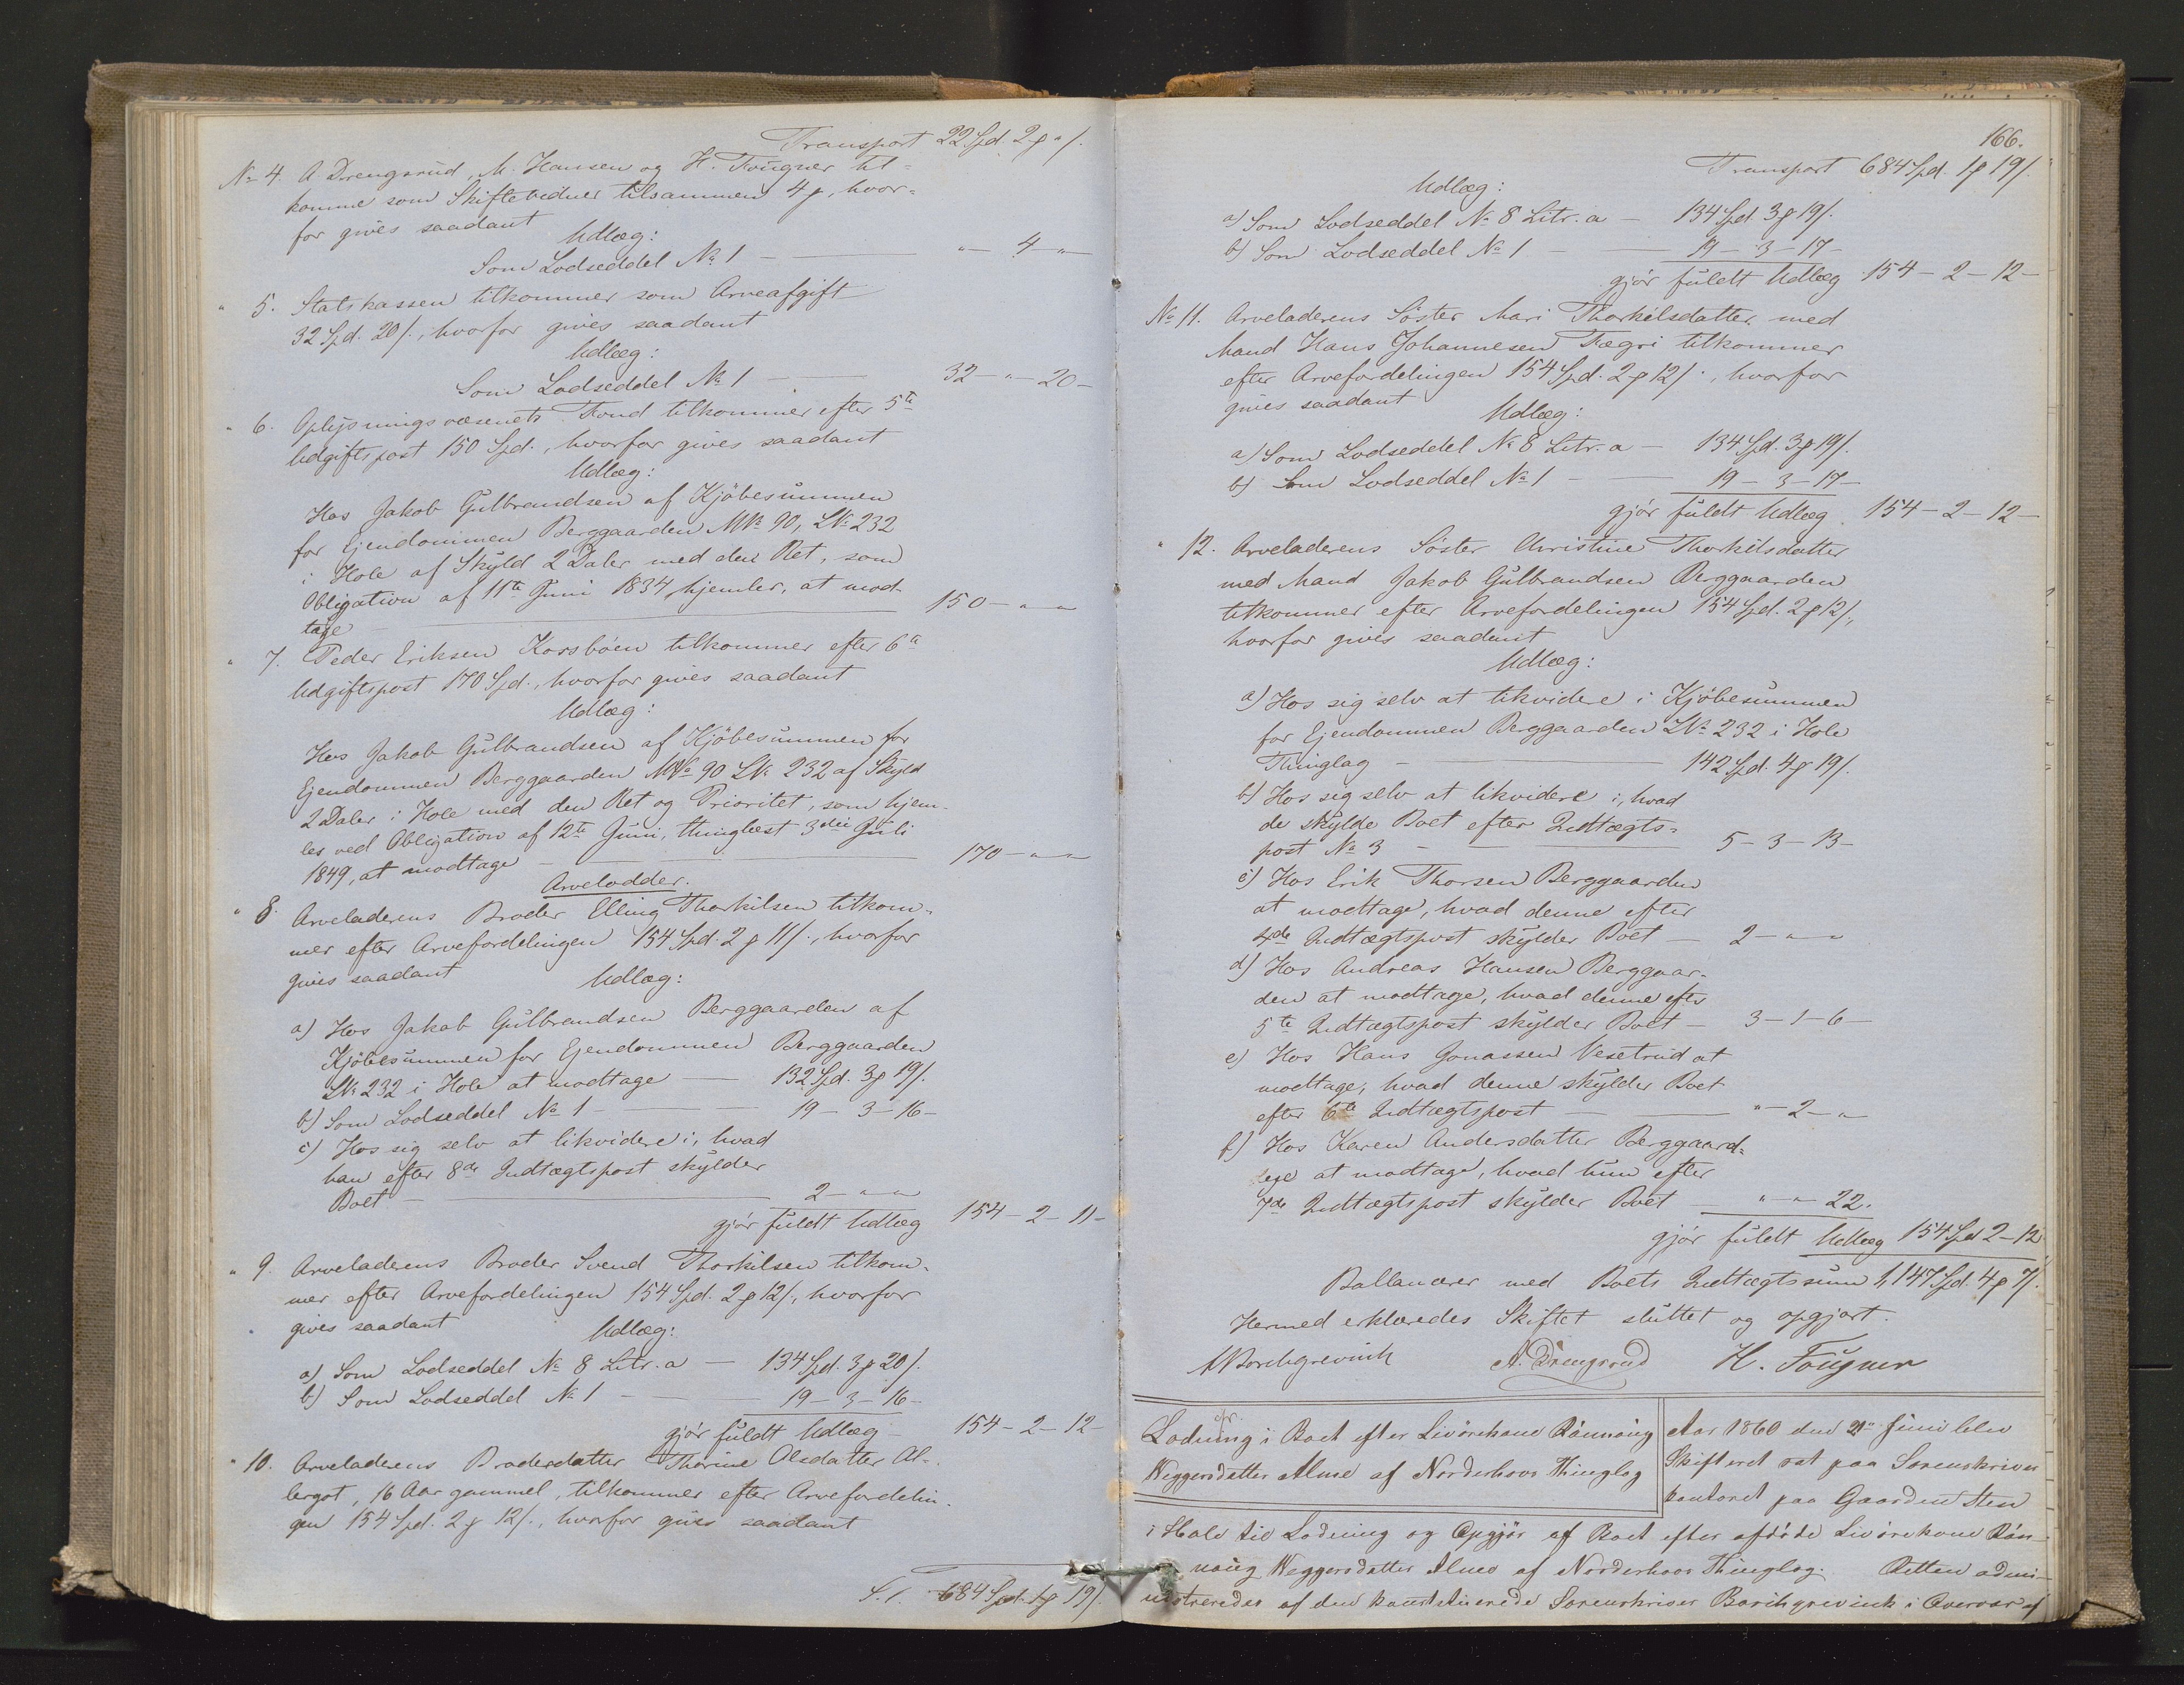 Transport 22 Spd. 2 ꝑ " /.
No 4. A Drengsrud, M. Hansen og H. Fougner til-
komme som Skiftevidner tilsammen 4 ꝑ, hvor-
for gives saadant
Udlæg:
Som Lodseddel No 1 — " — 4 — "
" 5. Statskassen tilkommer som Arveafgift
32 Spd. 20 /., hvorfor gives saadant
Udlæg:
Som Lodseddel No 1 — 32 — " — 20 —
" 6. Oplysningsvæsenets Fond tilkommer efter 5te
Udgiftspost 150 Spd., hvorfor gives saadant
Udlæg:
Hos Jakob Gulbrandsen af Kjöbesummen
for Ejendommen Berggaarden MNo 90, LNo 232
i Hole af Skyld 2 Daler med den Ret, som
Obligation af 11te Juni 1834 hjemler, at mod-
tage — 150 — " — "
" 7. Peder Eriksen Korsböen tilkommer efter 6te
Udgiftspost 170 Spd., hvorfor gives saadant
Udlæg:
Hos Jakob Gulbrandsen af Kjöbesummen for
Ejendommen Berggaarden MNo 90 LNo 232 af Skyld
2 Daler i Hole med den Ret og Prioritet, som hjem-
les ved Obligation af 12te Juni, thinglæst 3die Juli
1849, at modtage — 170 — " — "
Arvelodder.
" 8. Arveladerens Broder Elling Thorkilsen tilkom-
mer efter Arvefordelingen 154 Spd. 2 ꝑ 11 /., hvorfor
gives saadant
Udlæg:
a) Hos Jakob Gulbrandsen Berggaarden af
Kjöbesummen for Ejendommen Berggaarden
LNo 232 i Hole at modtage — 132 Spd. 3 ꝑ 19 /.
b) Som Lodseddel No 1 — 19 — 3 — 16 —
c) Hos sig selv at likvidere i, hvad
han efter 8de Indtægtspost skylder
Boet — 2 — " — "
gjör fuldt Udlæg 154 — 2 — 11 —
" 9. Arveladerens Broder Svend Thorkilsen tilkom-
mer efter Arvefordelingen 154 Spd. 2 ꝑ 12 /., hvorfor
gives saadant
Udlæg:
a) Som Lodseddel No 8 Litr. a — 134 Spd. 3 ꝑ 20 /.
b) Som Lodseddel No 1 — 19 — 3 — 16 —
gjör fuldt Udlæg — 154 — 2 — 12 —
" 10. Arveladerens Broderdatter Thorine Olsdatter Al-
bergot, 16 Aar gammel, tilkommer efter Arvefordelin-
gen 154 Spd. 2 ꝑ 12 /., hvorfor gives saadant
684 Spd. 1 ꝑ 19 /.
166.
Transport 684 Spd. 1 ꝑ 19 /.
Udlæg:
a) Som Lodseddel No 8 Litr. a — 134 Spd. 3 ꝑ 19 /.
b) Som Lodseddel No 1 — 19 — 3 — 17 —
gjör fuldt Udlæg 154 — 2 — 12 —
No 11. Arveladerens Söster Mari Thorkilsdatter med
Mand Hans Johannesen Fægri tilkommer
efter Arvefordelingen 154 Spd. 2 ꝑ 12 /., hvorfor
gives saadant
Udlæg:
a) Som Lodseddel No 8 Litr. a — 134 Spd. 3 ꝑ 19 /.
b) Som Lodseddel No 1 — 19 — 3 — 17 —
gjör fuldt Udlæg 154 — 2 — 12 —
" 12. Arveladerens Söster Christine Thorkilsdatter
med Mand Jakob Gulbrandsen Berggaarden
tilkommer efter Arvefordelingen 154 Spd. 2 ꝑ 12 /.,
hvorfor gives saadant
Udlæg:
a) Hos sig selv at likvidere i Kjöbesummen
for Ejendommen Berggaarden LNo 232 i Hole
Thinglag — 142 Spd. 4 ꝑ 19 /.
b) Hos sig selv at likvidere i, hvad
de skylde Boet efter Indtægts-
post No 3 — 5 — 3 — 13 —
c) Hos Erik Thorsen Berggaarden
at modtage, hvad denne efter
4de Indtægtspost skylder Boet — 2 — " — "
d) Hos Andreas Hansen Berggaar-
den at modtage, hvad denne efter
5te Indtægtspost skylder Boet — 3 — 1 — 6 —
e) Hos Hans Jonassen Vesetrud at
modtage, hvad denne skylder Boet
efter 6te Indtægtspost — " — 2 — "
f) Hos Karen Andersdatter Berggaard-
eje at modtage, hvad hun efter
7de Indtægtspost skylder Boet — " — " 22.
gjör fuldt Udlæg 154 Spd 2 — 12
Ballancerer med Boets Indtægtssum 1,147 Spd. 4 ꝑ 7 /.
Hermed erklæredes Skiftet sluttet og opgjort.
Borchgrevink A. Drengsrud H. Fougner
Lodning i Boet efter Livörekone Rönnaug
Weggersdatter Alme af Norderhovs Thinglag
Aar 1860 den 21de Juni blev
Skifteret sat paa Sorenskriver
kontoret paa Gaarden Sten
i Hole til Lodning og Opgjör af Boet efter afdöde Livörekone Rön-
naug Weggersdatter Alme af Norderhovs Thinglag. Retten admi-
nistreredes af den konstituerede Sorenskriver Borchgrevink i Overvær af